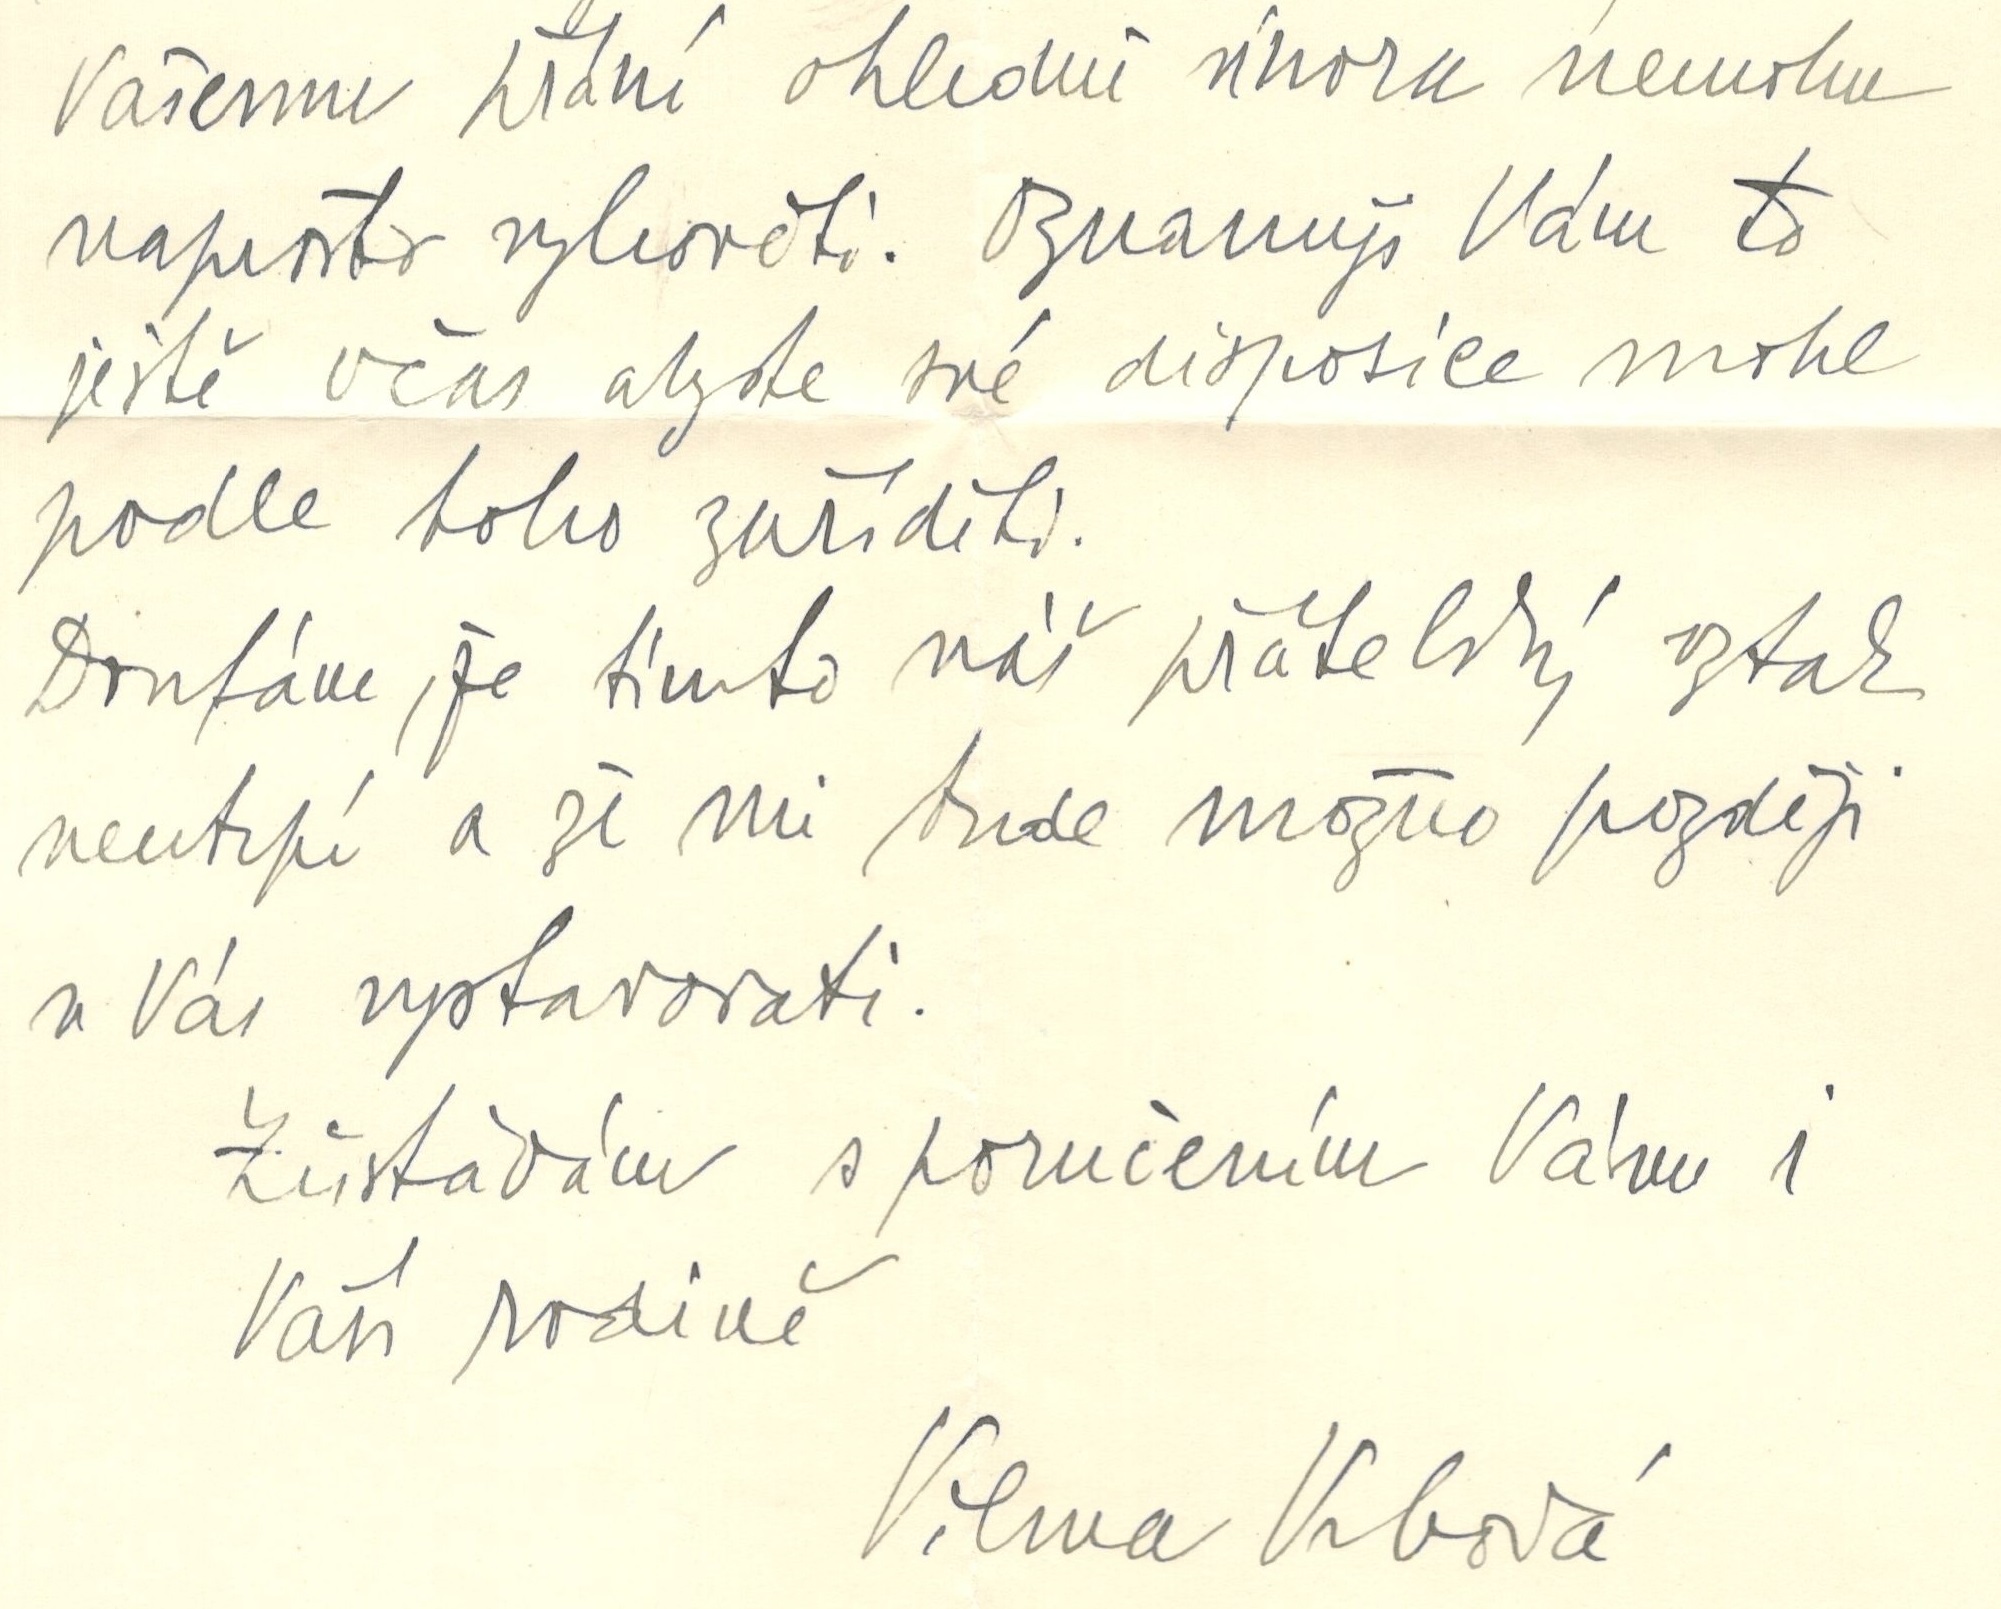 Vašemu přání ohledně února nemohu
naprosto vyhověti. Oznamuji Vám to
ještě včas abyste své disposice mohl
podle toho zaříditi.
Doufám, že tímto náš přátelský vztah
neutrpí a že mi bude možno později
u Vás vystavovati.
Zůstávám s poručením Vám i
Vaší rodině
Vilma Vrbová